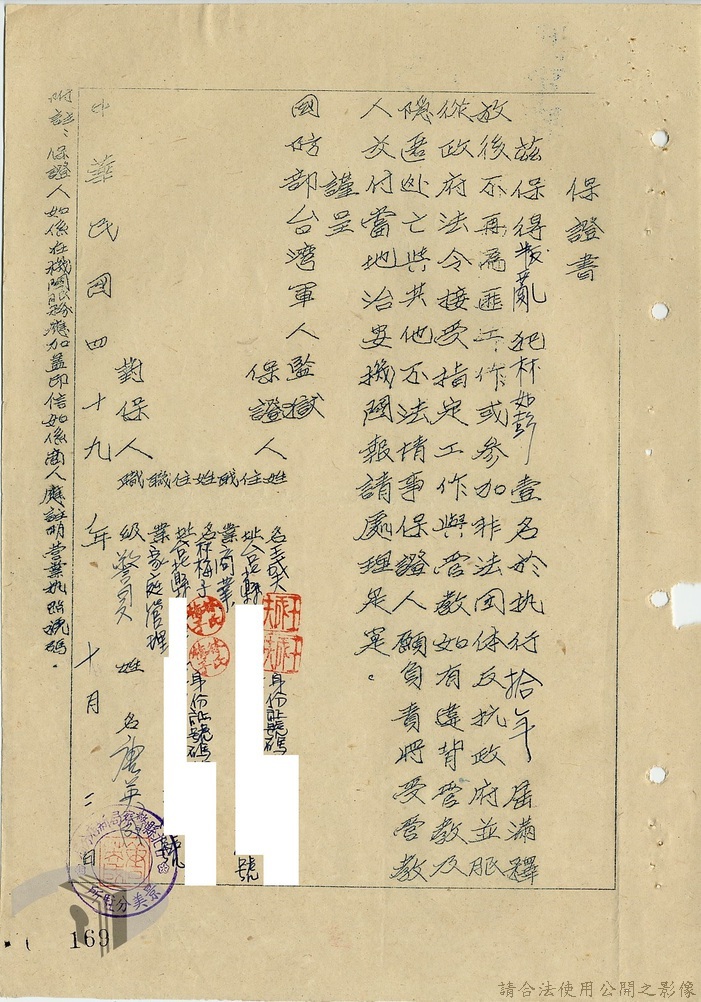 保證書
茲保得叛亂犯林如彭壹名於执行拾年屆滿釋
放後不再為匪工作或参加非法団体反抗政府並服
從政府法令接受指定工作與管教如有違背管教及
隱匿处亡與其他不法情事保證人願負責將受管教
人交付當地治安機関報請處理是寔。
謹呈
國防部台湾軍人監獄
保證人
姓名王
住址台北縣
身份証號碼
號
職業商業
姓名林梅子
住址台北縣
身份証號碼
號
職業家庭管理
對保人
職級警員
姓名唐英
中華民國四十九年十月二日
附註：保證人如係在機関服務應加蓋印信如係商人應註明營業执照號碼。
景美分駐所
169
請合法使用公開之影像